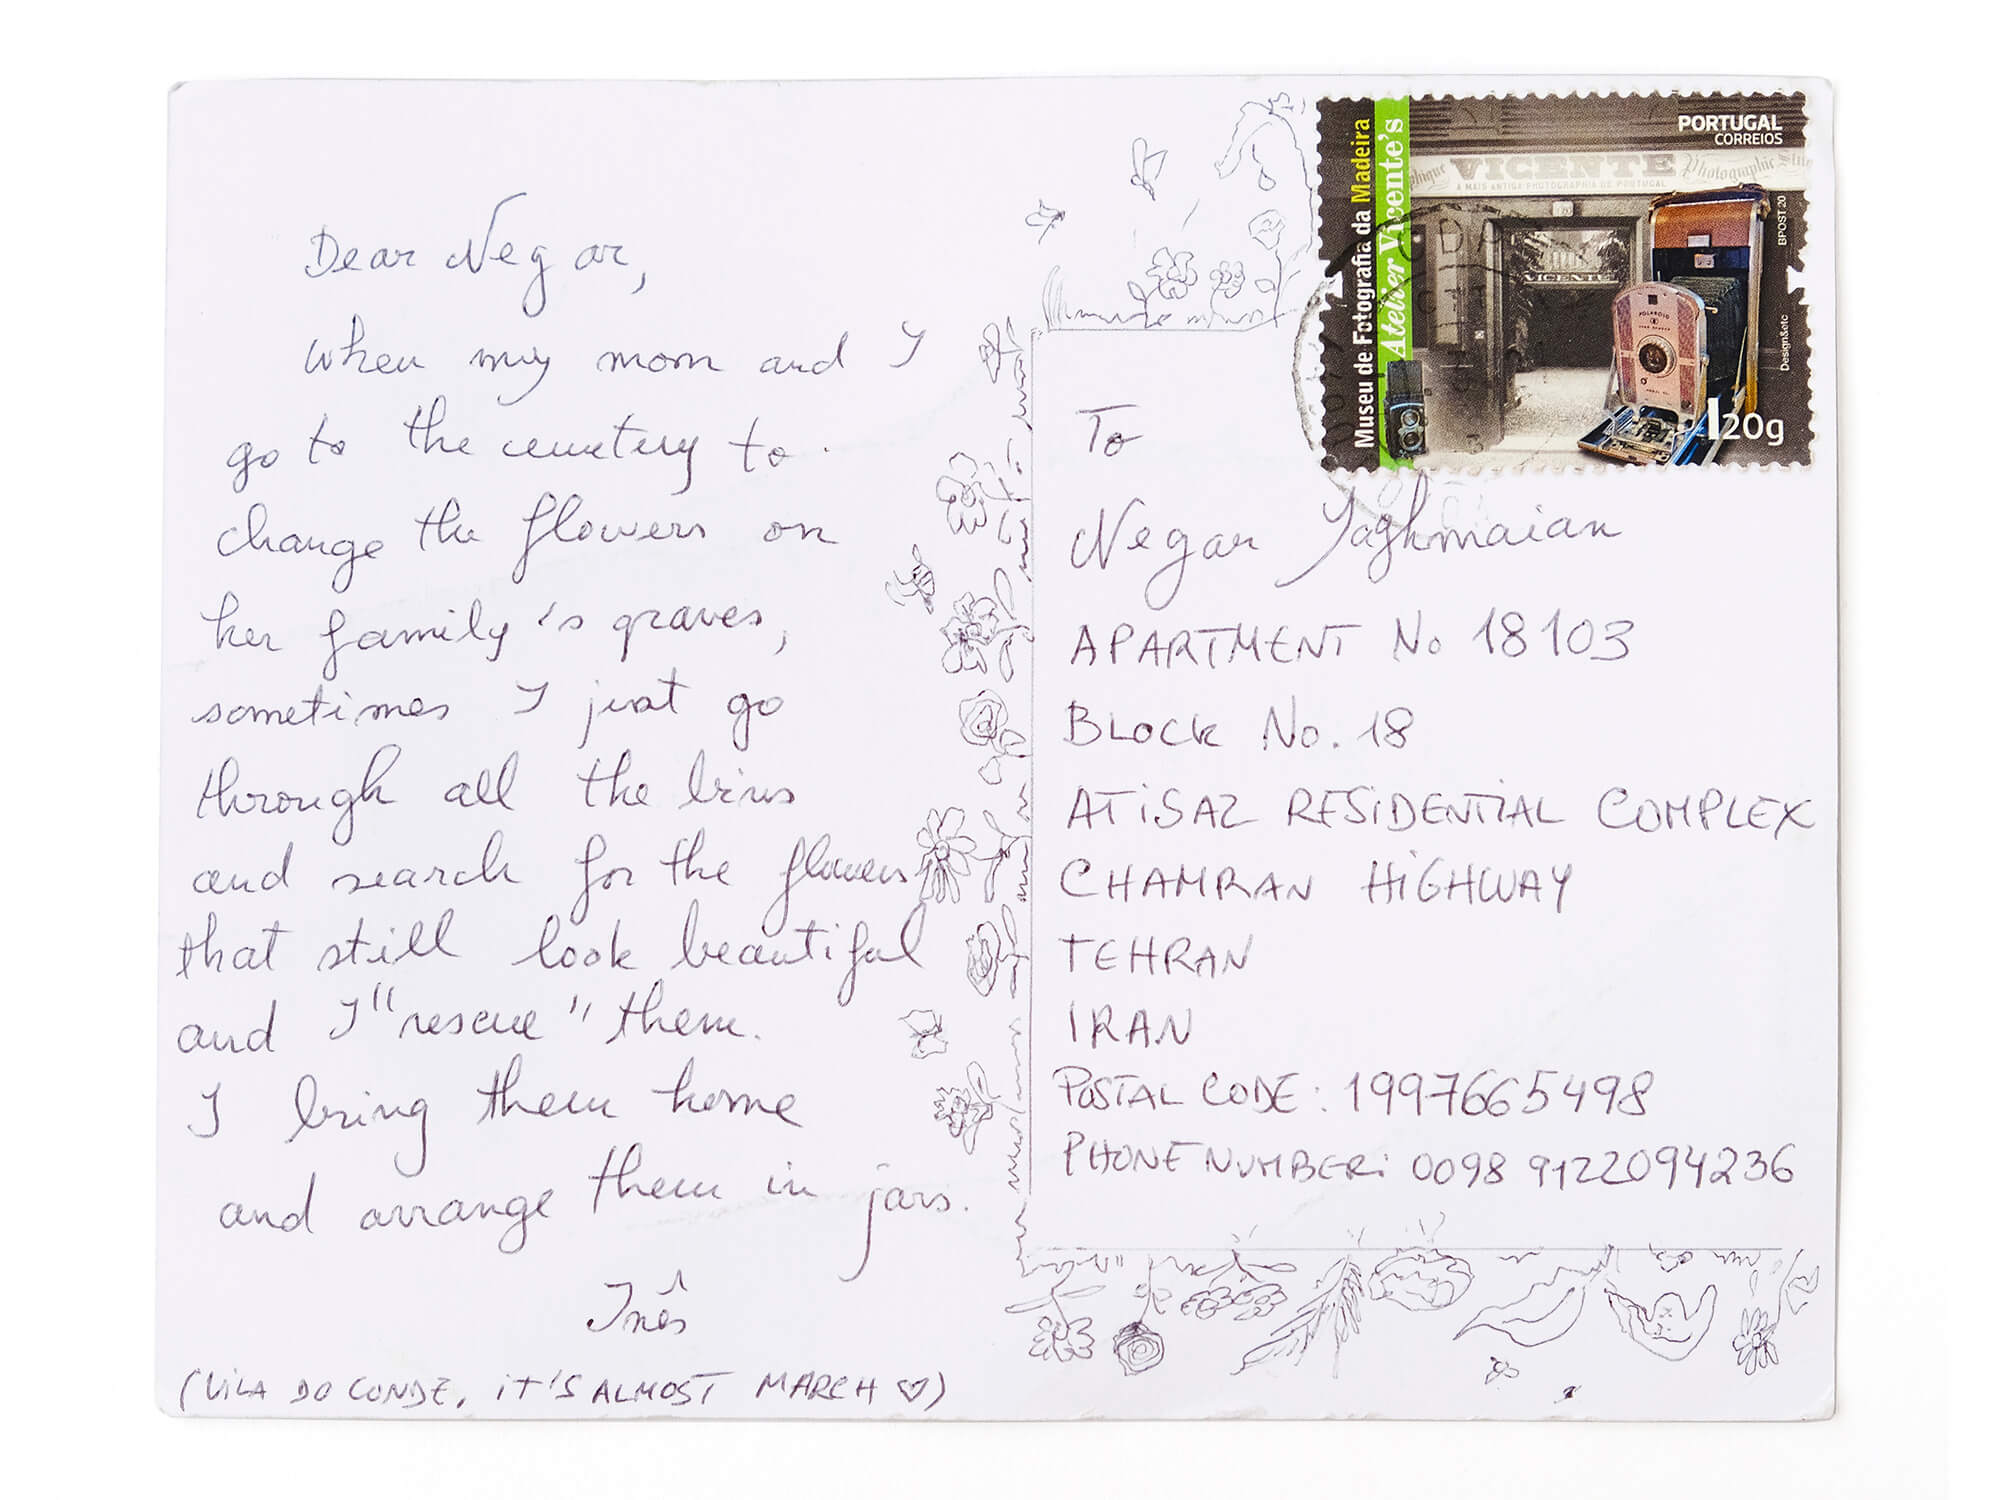 Dear Negar,
when my mom and I
go to the cemetery to
change the flowers on
her family's graves,
sometimes I just go
through all the bins
and search for the flowers
that still look beautiful
and I "rescue" them.
I bring them home
and arrange them in jars.
Inês
(VILA DO CONDE, IT'S ALMOST MARCH ♡)
PORTUGAL
CORREIOS
VICENTE
Photographic
A MAIS ANTIGA PHOTOGRAPHIA DE PORTUGAL
VICENTE
Museu de Fotografia da Madeira
Atelier Vicente's
BPOST 20
Design&etc
POLAROID
I20g
To
Negar Yaghmaian
APARTMENT No 18103
BLOCK No. 18
ATISAZ RESIDENTIAL COMPLEX
CHAMRAN HIGHWAY
TEHRAN
IRAN
POSTAL CODE: 1997665498
PHONE NUMBER: 0098 9122094236